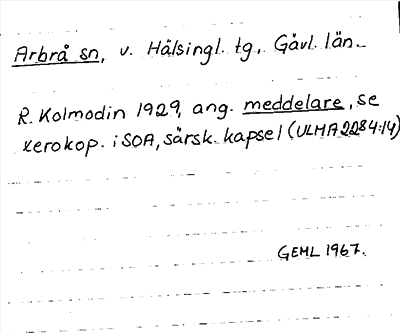 Arbrå sn, v. Hälsingl. tg., Gävl. län.
R. Kolmodin 1929, ang. meddelare, se
xerokop. i SOA, särsk. kapsel (ULMA 2284:14)
GEML 1967.